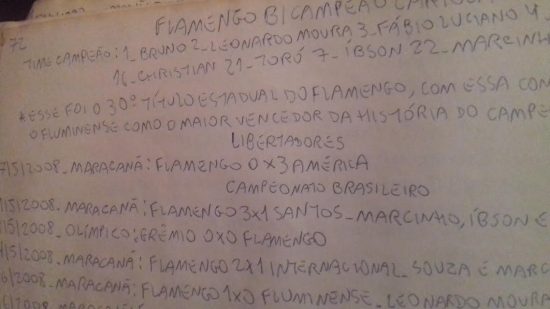 72
FLAMENGO BICAMPEÃO
TIME CAMPEÃO: 1_BRUNO 2_LEONARDO MOURA 3_FÁBIO LUCIANO 4_
16_CHRISTIAN 21_TORÓ 7_ÍBSON 22_MARCINH
*ESSE FOI O 30º TÍTULO ESTADUAL DO FLAMENGO, COM ESSA CON
O FLUMINENSE COMO O MAIOR VENCEDOR DA HISTÓRIA DO CAMPE
LIBERTADORES
7/5/2008_MARACANÃ: FLAMENGO 0X3 AMÉRICA
CAMPEONATO BRASILEIRO
/5/2008_MARACANÃ: FLAMENGO 3X1 SANTOS_MARCINHO, ÍBSON E
/5/2008_OLÍMPICO: GRÊMIO 0X0 FLAMENGO
/5/2008_MARACANÃ: FLAMENGO 2X1 INTERNACIONAL_SOUZA E MARC
6/2008_MARACANÃ: FLAMENGO 1X0 FLUMINENSE_LEONARDO MOURA